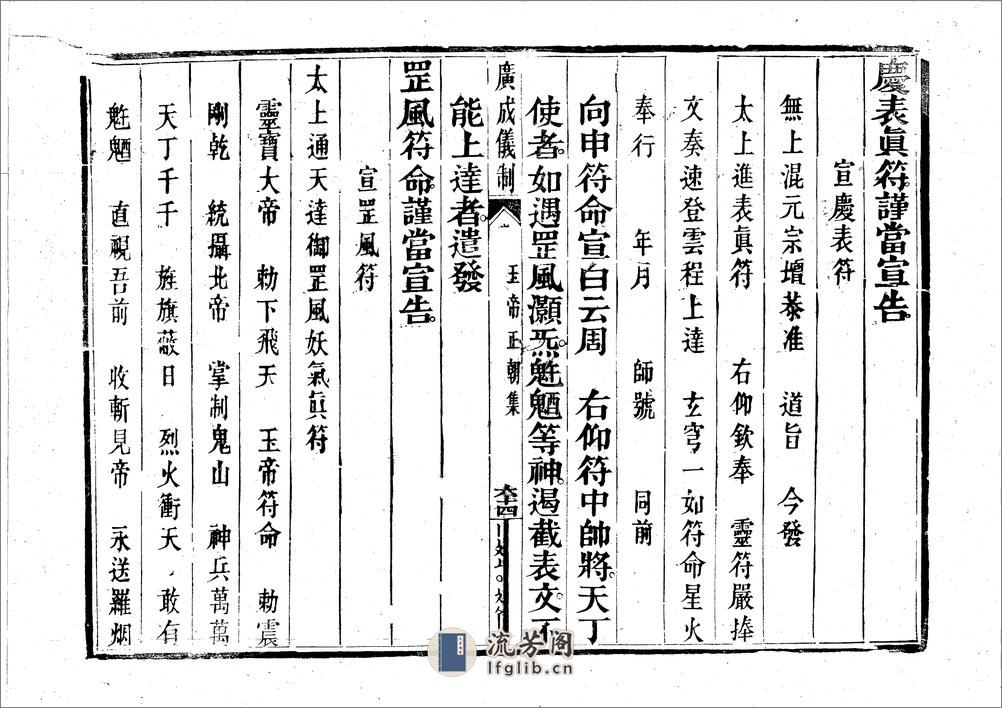 慶表眞符謹當宣告
宣慶表符
無上混元宗壇恭准　道旨　今發
太上進表眞符　右仰欽奉　靈符嚴捧
文奏速登雲程上達　玄穹一如符命星火
奉行　年月　師號　同前
向申符命宣白云周　右仰符中帥將天丁
使者如遇罡風灝炁魁魈等神遏截表文不
廣成儀制　玉帝正朝集　六十四
能上達者遣發
罡風符命謹當宣告
宣罡風符
太上通天達御罡風妖氣眞符
靈寶大帝　勅下飛天　玉帝符命　勅震
剛乾　統攝北帝　掌制鬼山　神兵萬萬
天丁千千　旌旗蔽日　烈火衝天　敢有
直視吾前　收斬見帝　永送羅烟
流芳阁
lfglib.cn